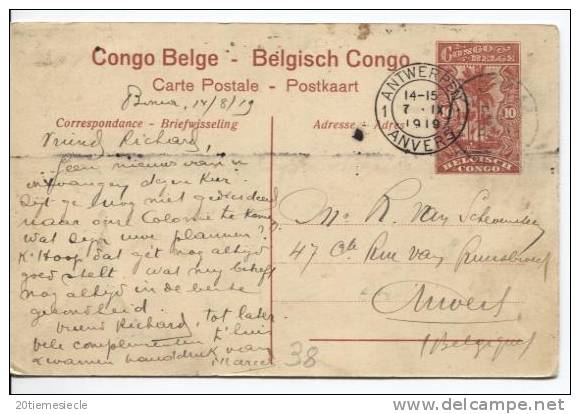 Congo Belge - Belgisch Congo
Carte Postale - Postkaart
CONGO BELGE
10
BELGISCH CONGO
ANTWERPEN
14-15
1 7 · IX
1919
ANVERS
Boma, 14/8/19
Correspondance - Briefwisseling
Adresse - Adres
Vriend Richard,
Geen nieuws van u
ontvangen dezen keer.
Zijt ge nog niet
naar onze Colonie te komen
wat zijn uwe plannen?
K'Hoop dat gét nog altijd
goed stelt wat mij betreft
nog altijd in de beste
gezondheid.
vriend Richard, tot later
vele complimenten t'huis
& warmen handdruk van
Marcel
Mr R. Van
47 Rue van
Anvers
(Belgique)
38
20tiemesiecle
delcampe.net